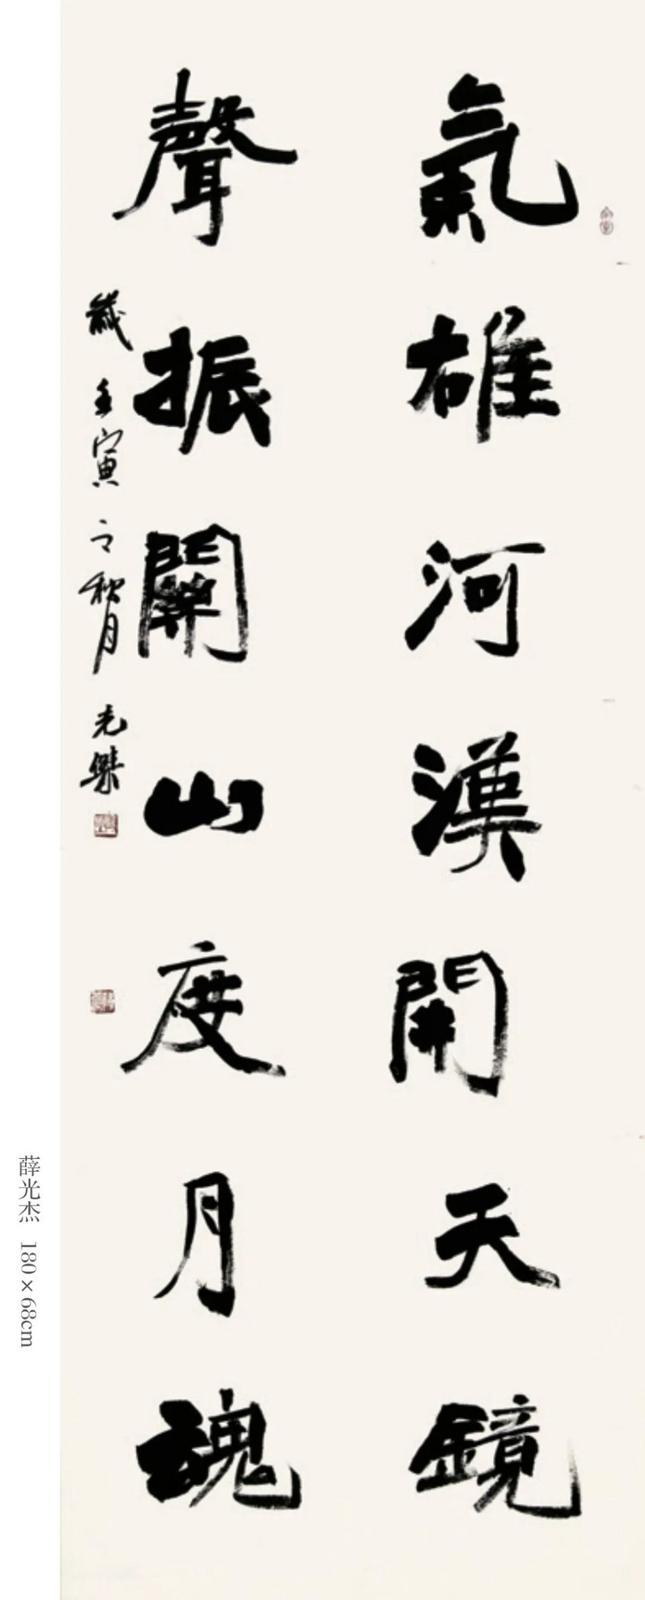 氣雄河漢開天鏡
聲振關山度月魂
歲壬寅之秋月 光傑
薛光杰 180×68cm